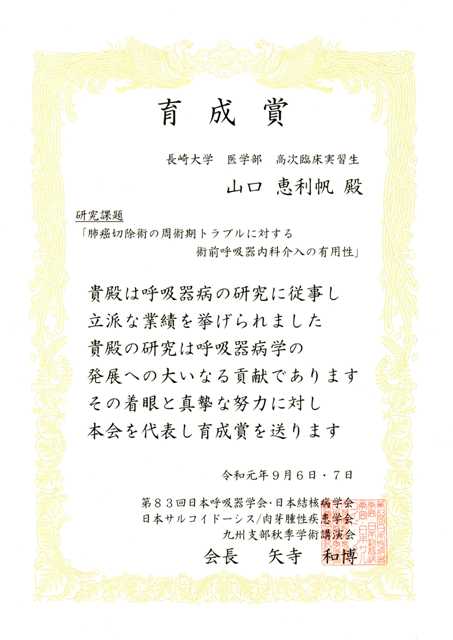 育成賞
長崎大学 医学部 高次臨床実習生
山口 恵利帆 殿
研究課題
「肺癌切除術の周術期トラブルに対する
術前呼吸器内科介入の有用性」
貴殿は呼吸器病の研究に従事し
立派な業績を挙げられました
貴殿の研究は呼吸器病学の
発展への大いなる貢献であります
その着眼と真摯な努力に対し
本会を代表し育成賞を送ります
令和元年9月6日・7日
第83回日本呼吸器学会・日本結核病学会
日本サルコイドーシス/肉芽腫性疾患学会
九州支部秋季学術講演会
会長 矢寺 和博